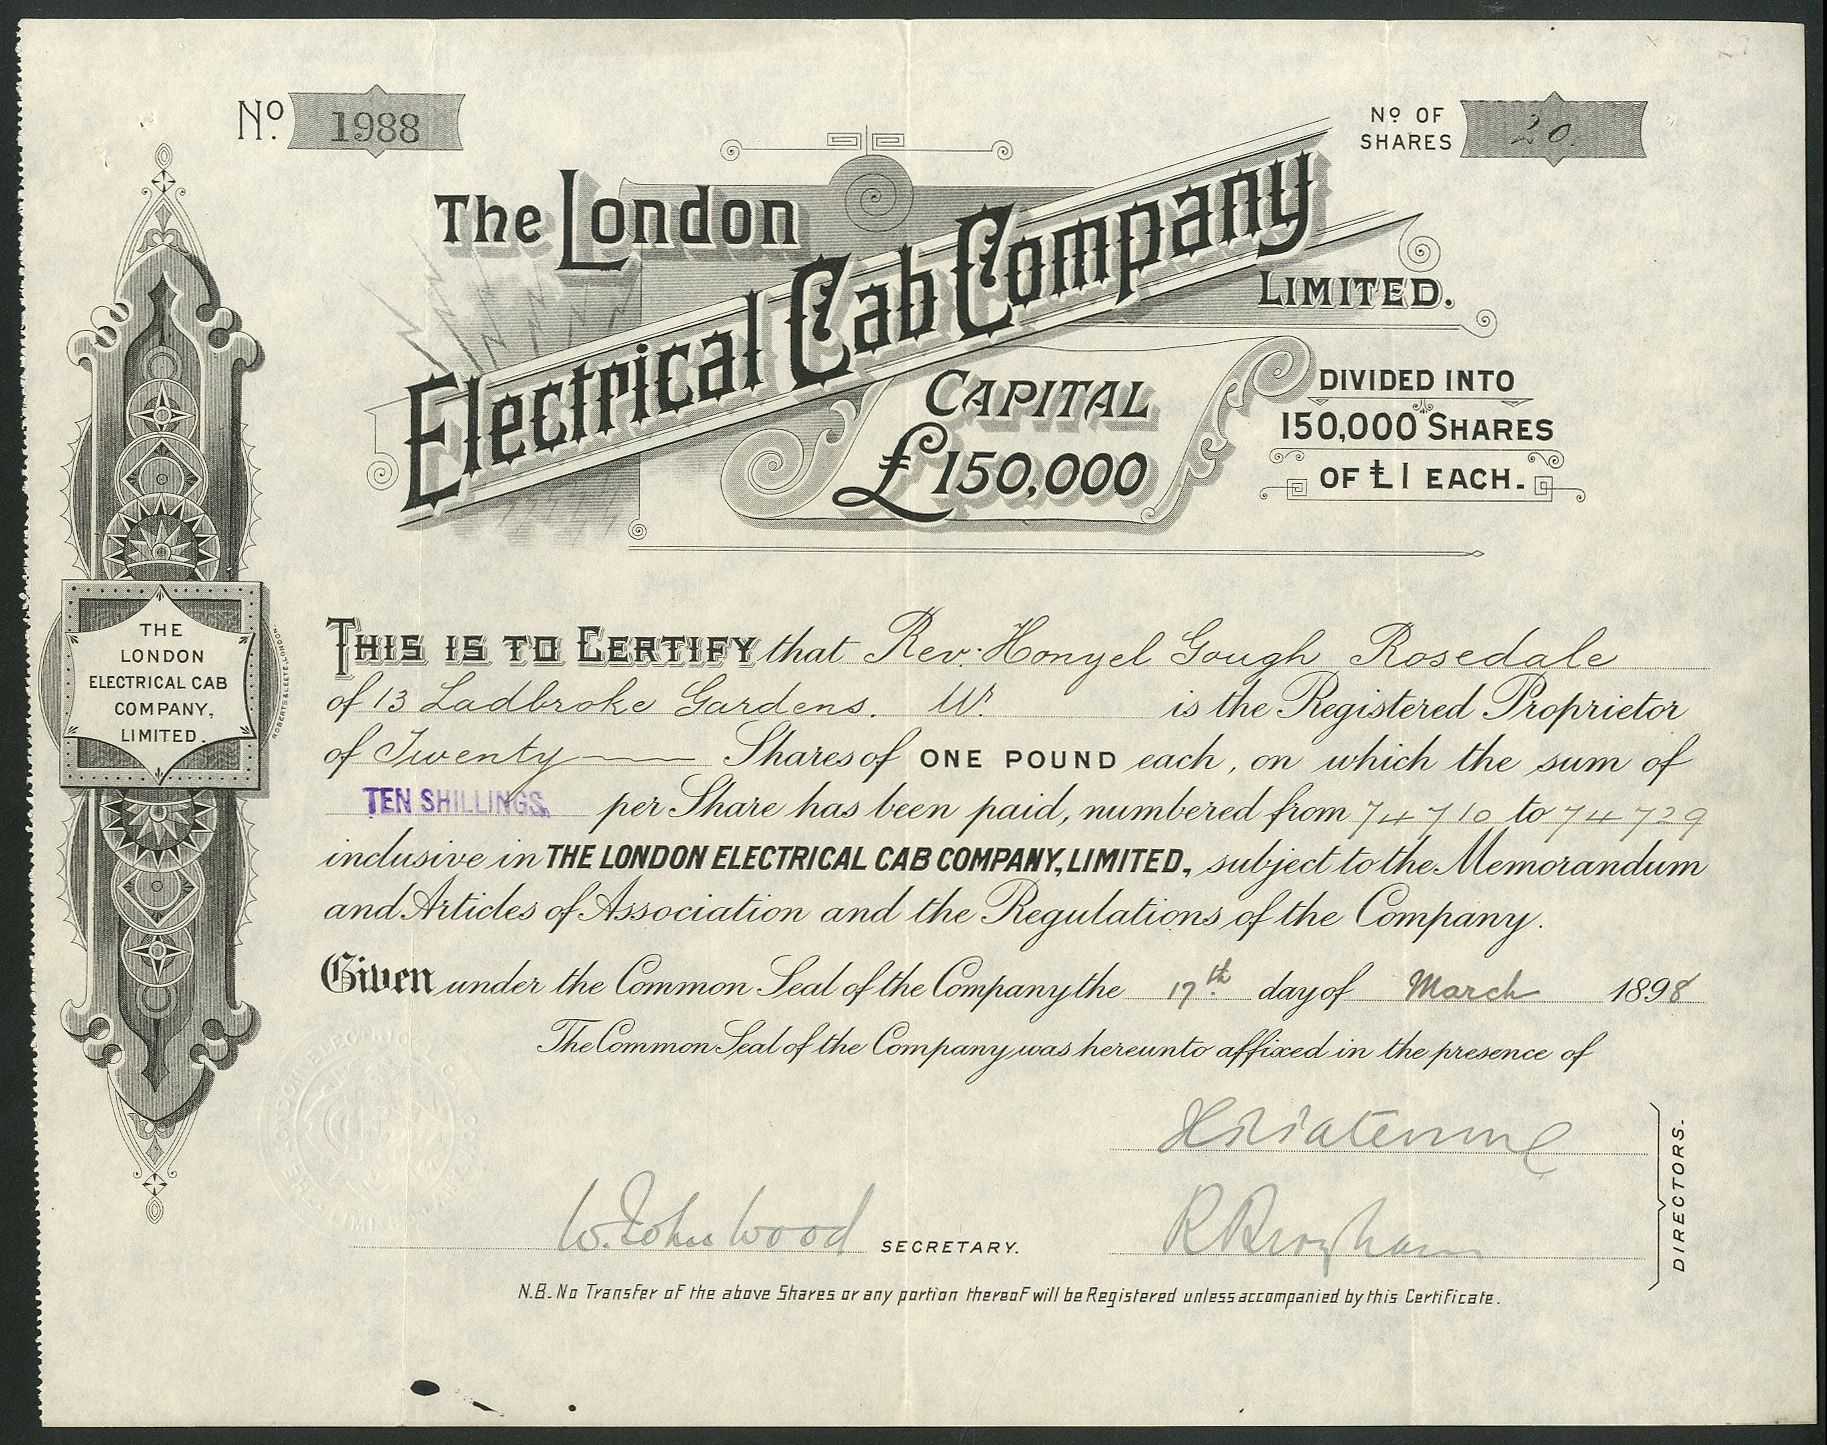 No. 1988
No OF SHARES 20.
The London
Electrical Cab Company
LIMITED.
CAPITAL
£150,000
DIVIDED INTO
150,000 SHARES
OF £1 EACH.
THE
LONDON
ELECTRICAL CAB
COMPANY,
LIMITED.
ROBERTS & LEETE, LONDON
THIS IS TO CERTIFY that Rev. Honyel Gough Rosedale
of 13 Ladbroke Gardens. W. is the Registered Proprietor
of Twenty Shares of ONE POUND each, on which the sum of
TEN SHILLINGS. per Share has been paid, numbered from 74710 to 74729
inclusive in THE LONDON ELECTRICAL CAB COMPANY, LIMITED, subject to the Memorandum
and Articles of Association and the Regulations of the Company.
Given under the Common Seal of the Company the 17th day of March 1898
The Common Seal of the Company was hereunto affixed in the presence of
W. John Wood SECRETARY.
DIRECTORS.
N.B. No Transfer of the above Shares or any portion thereof will be Registered unless accompanied by this Certificate.